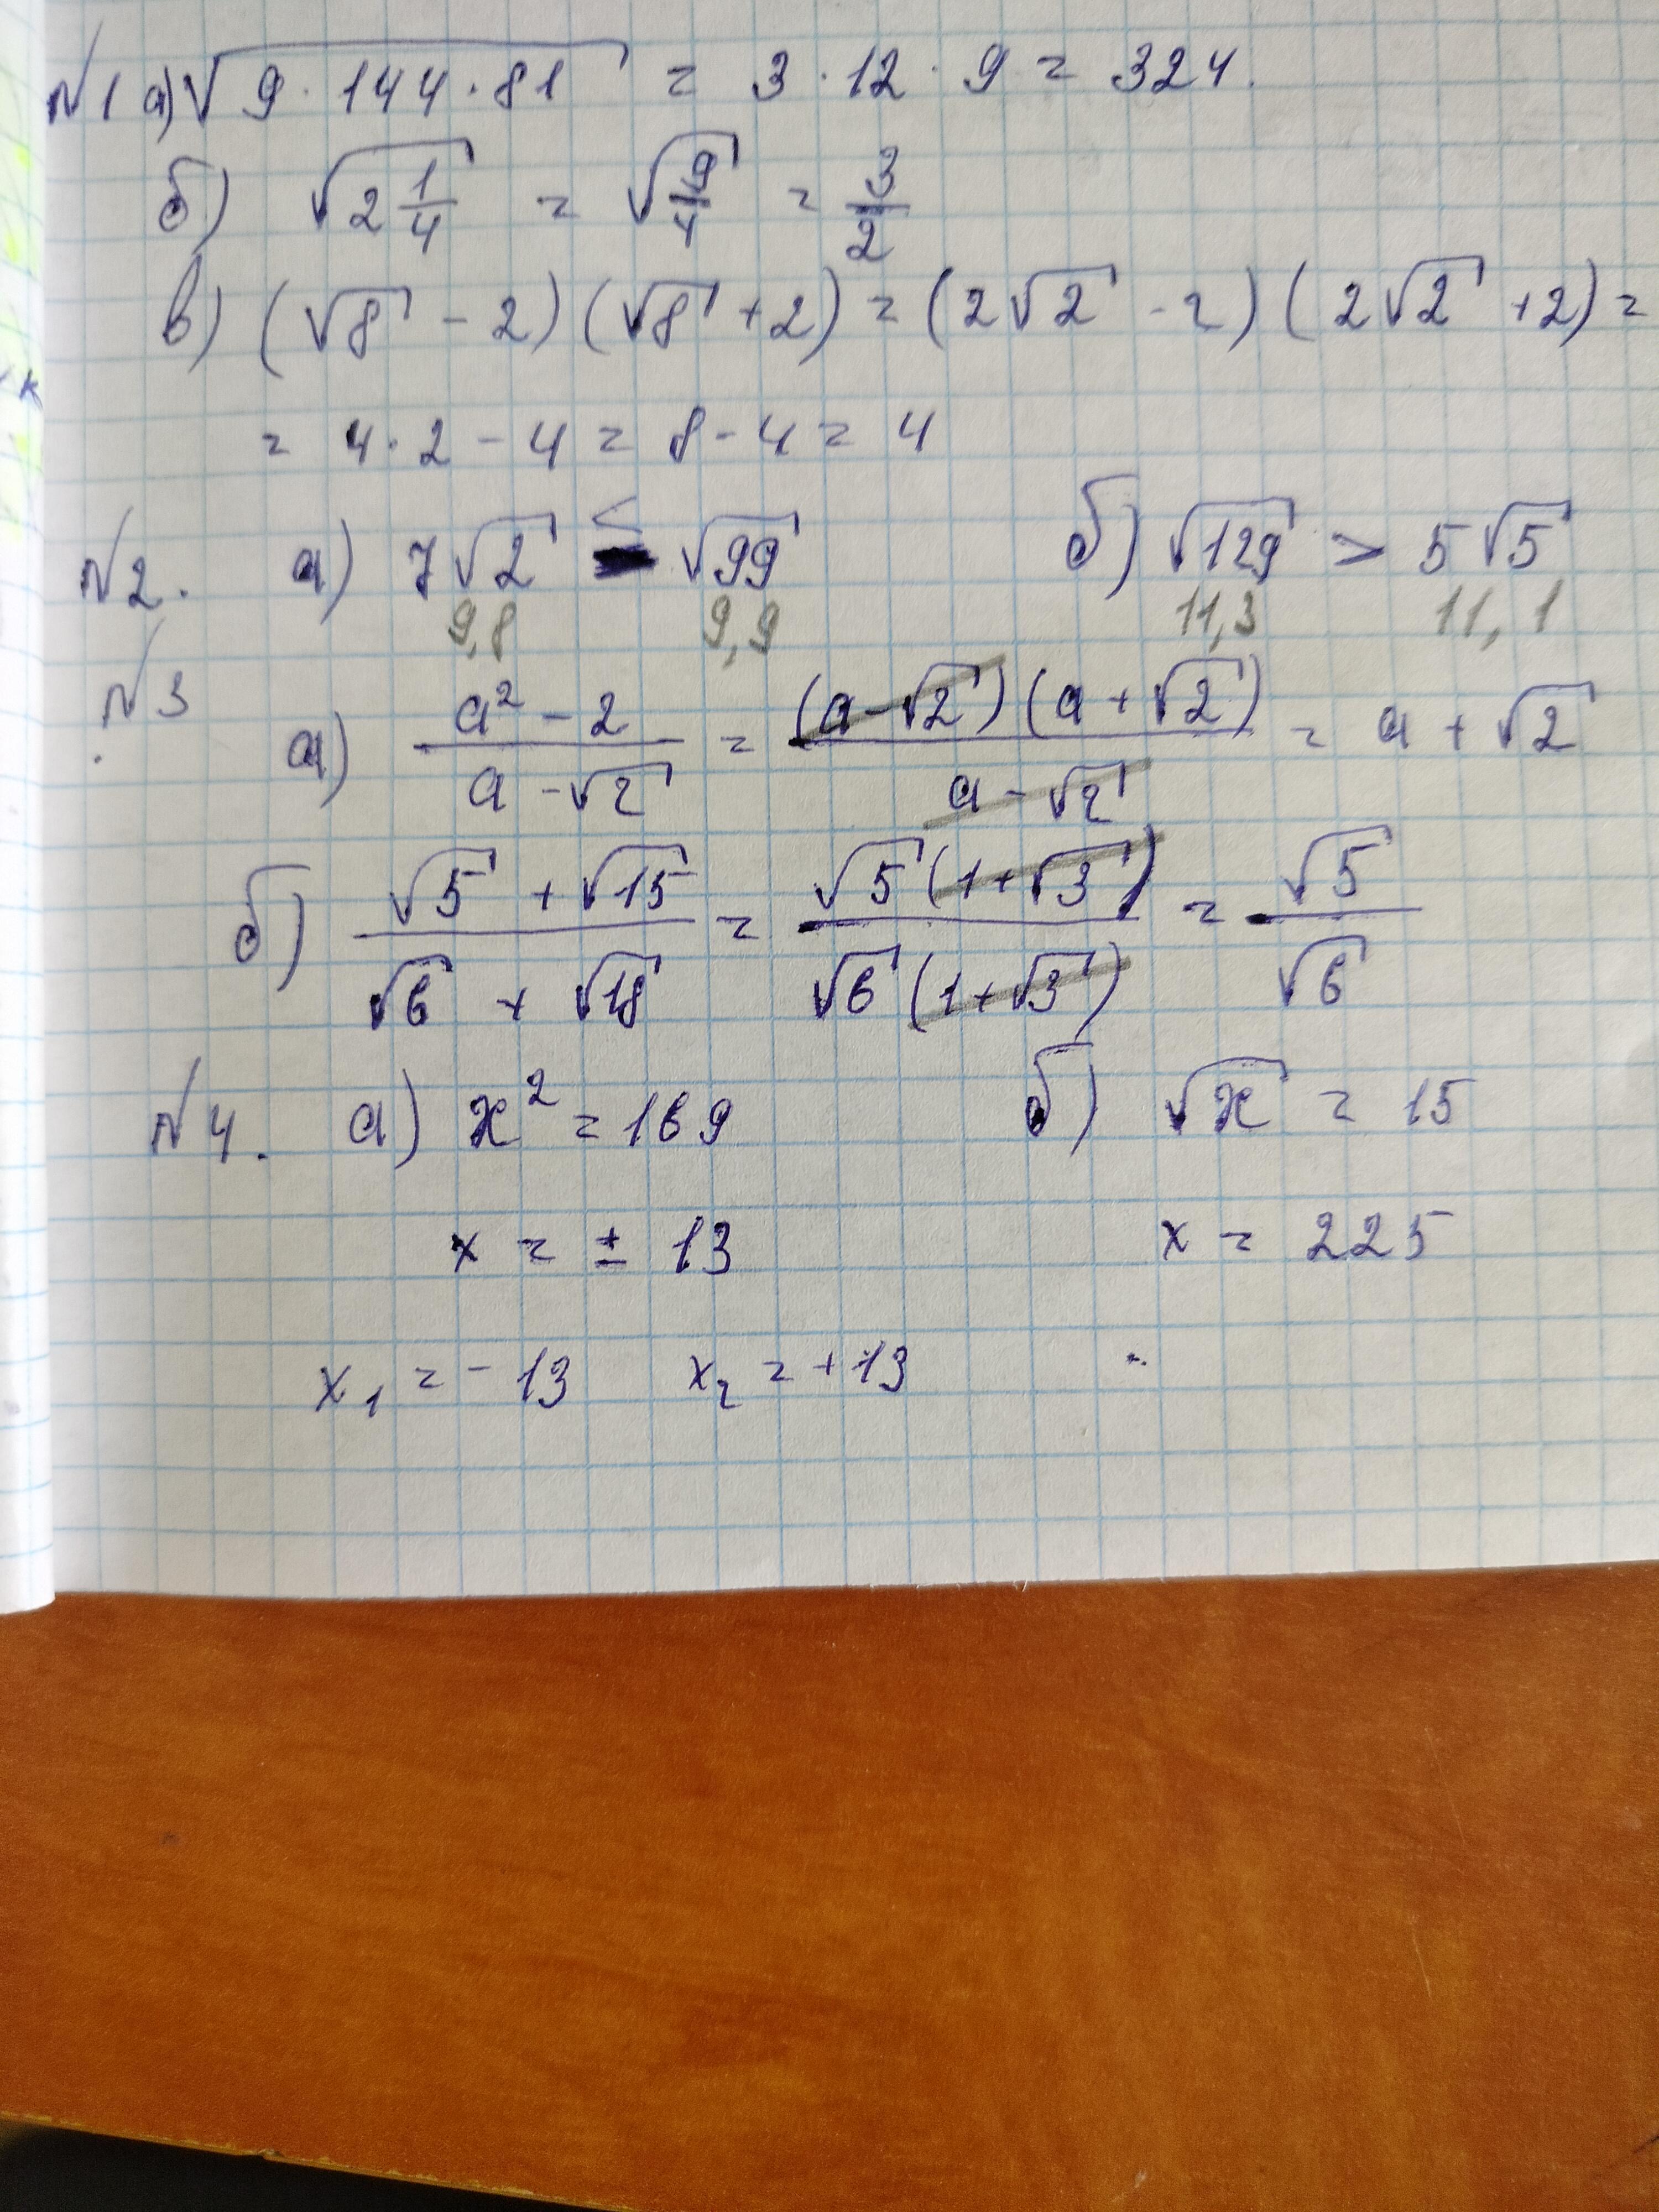 N1 а) √(9·144·81) = 3·12·9 = 324.
б) √(2 1/4) = √(9/4) = 3/2
в) (√8 - 2)(√8 + 2) = (2√2 - 2)(2√2 + 2) =
= 4·2 - 4 = 8 - 4 = 4
N2. а) 7√2 < √99 б) √129 > 5√5
9,8 9,9 11,3 11,1
N3
а) (a² - 2)/(a - √2) = ((a - √2)(a + √2))/(a - √2) = a + √2
б) (√5 + √15)/(√6 + √18) = (√5(1 + √3))/(√6(1 + √3)) = √5/√6
N4. а) x² = 169 б) √x = 15
x = ± 13 x = 225
x₁ = - 13 x₂ = + 13